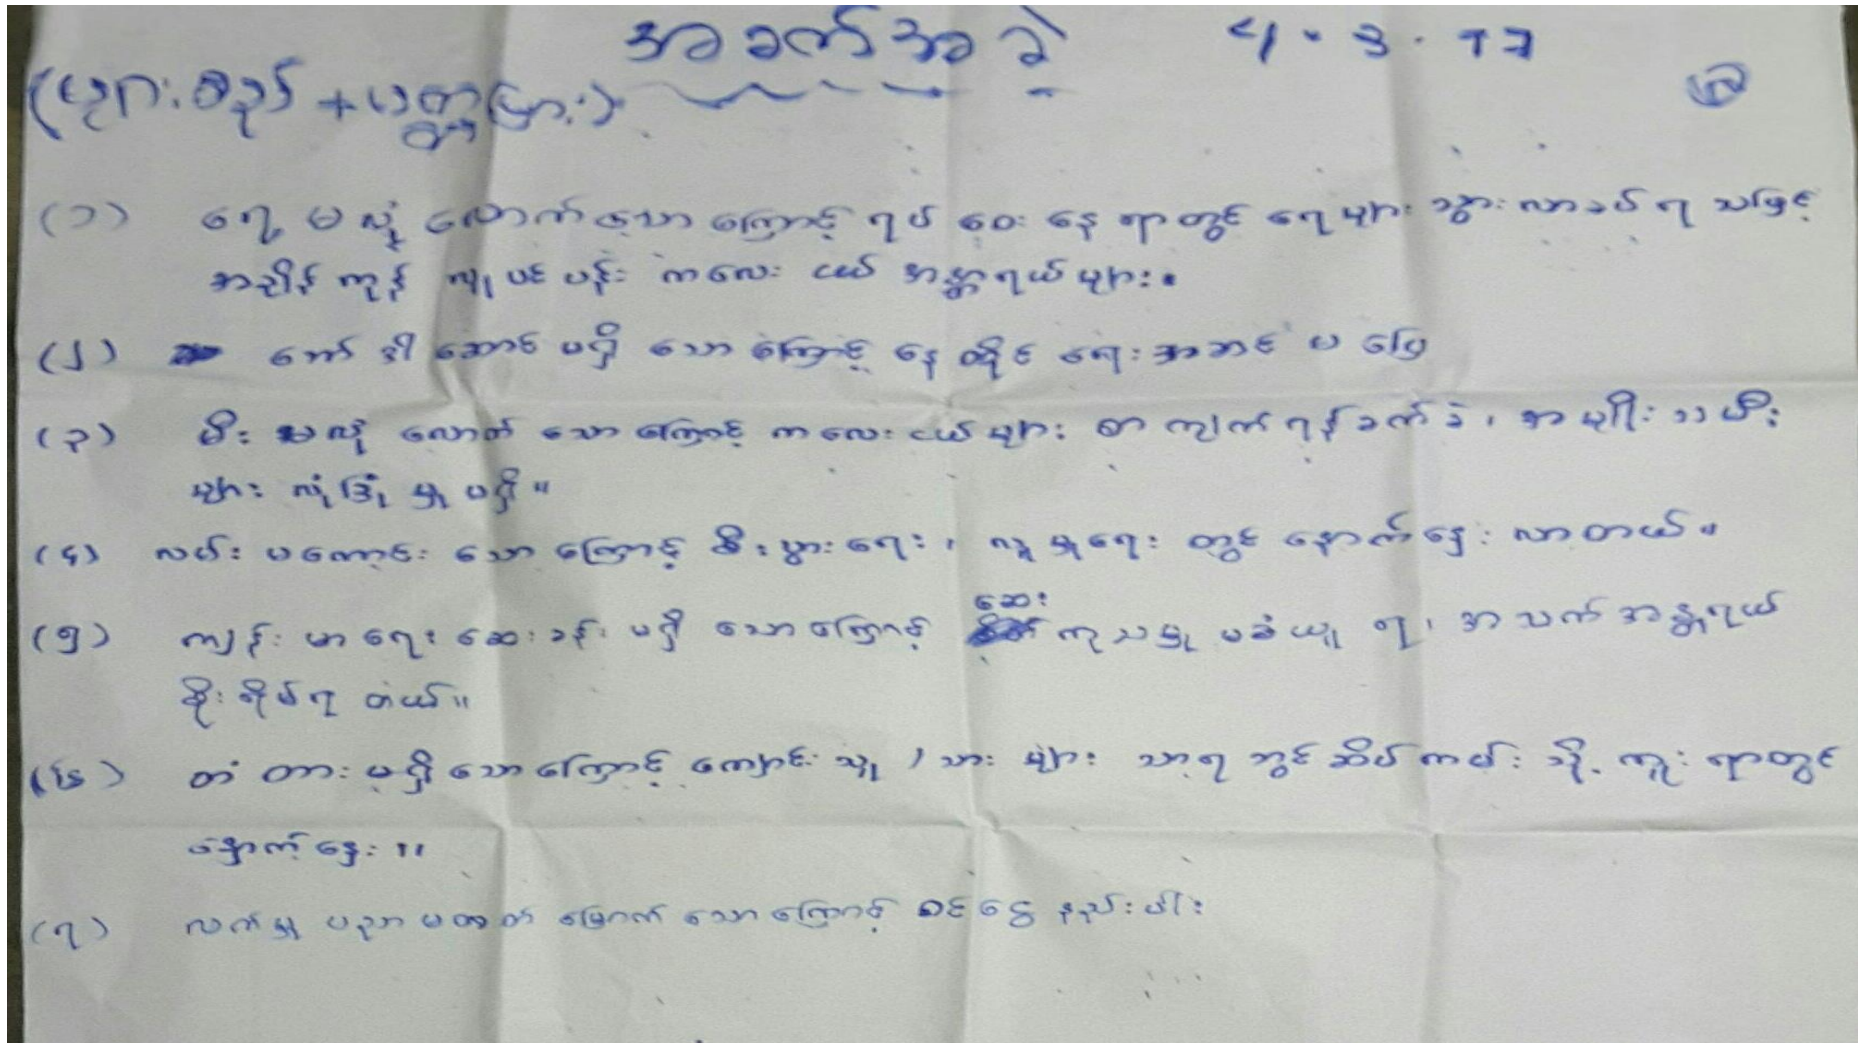 အခက်အခဲ 4.3.17
(ဘုရားစည် + ပတ္တမြား)
(၁) ရေ မလုံလောက်သောကြောင့် ရပ်ဝေးနေရာတွင် ရေများ သွားလာခပ်ရသဖြင့်
အချိန်ကုန် လူပင်ပန်း ကလေးငယ် အန္တရာယ်များ။
(၂) အဆောင် မရှိသောကြောင့် နေထိုင်ရေး အဆင်မပြေ
(၃) မီး မလုံလောက်သောကြောင့် ကလေးငယ်များ စာကျက်ရန်ခက်ခဲ၊ အမျိုးသမီး
များ လုံခြုံမှုမရှိ။
(၄) လမ်း မကောင်းသောကြောင့် စီးပွားရေး၊ လူမှုရေးတွင် နှောက်နှေးလာတယ်။
(၅) ကျန်းမာရေး ဆေးခန်း မရှိသောကြောင့် ဆေးကုသမှု မခံယူရ၊ အသက်အန္တရာယ်
စိုးရိမ်ရတယ်။
(၆) တံတား မရှိသောကြောင့် ကျောင်းသူ / သား များ ဆိပ်ကမ်းသို့ ကူးရာတွင်
နှောက်နှေး။
(၇) လက်မှုပညာ မတတ်မြောက်သောကြောင့် ဝင်ငွေနည်းပါး